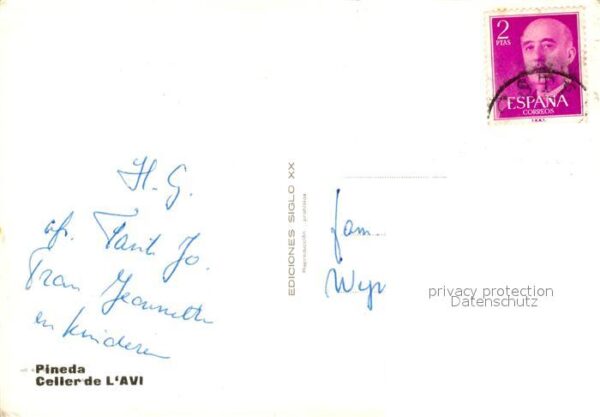 2
PTAS
ESPAÑA
CORREOS
H. G.
Jo.
Jeannette
en kinderen
EDICIONES SIGLO XX
Reproducción prohibida
fam.
privacy protection
Datenschutz
Pineda
Celler de L'AVI